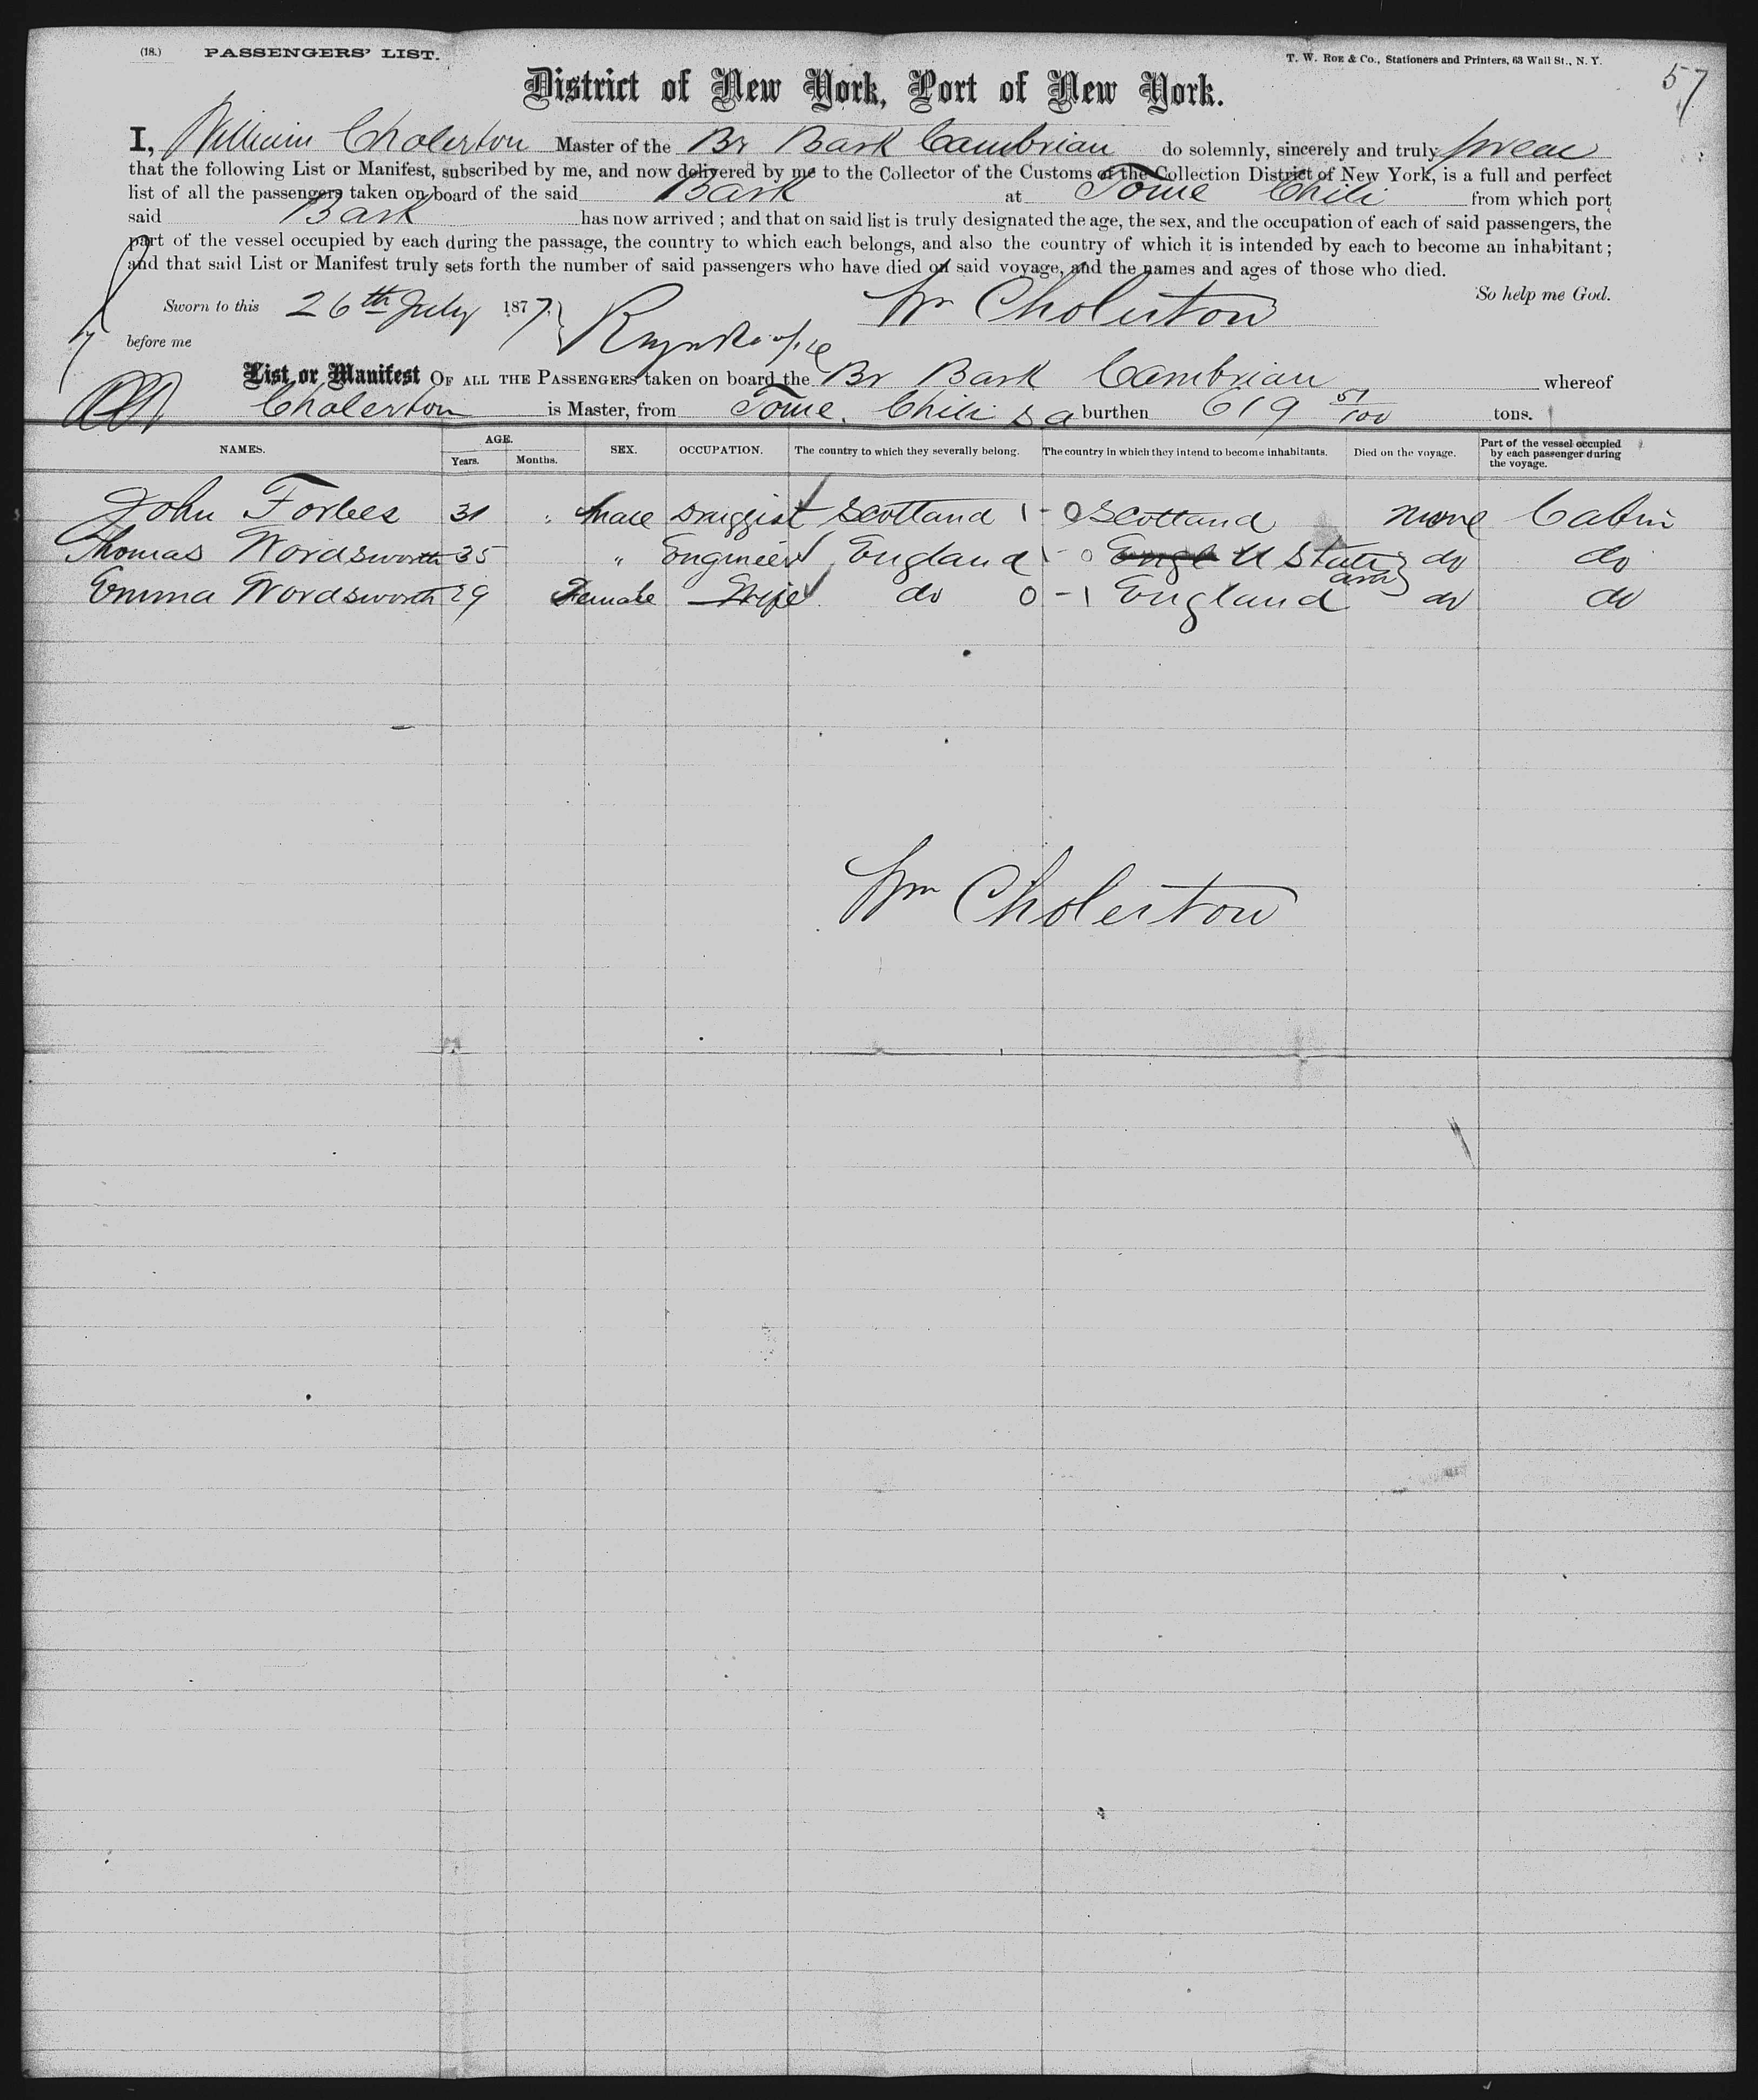 (18.) PASSENGERS' LIST.
T. W. ROE & Co., Stationers and Printers, 63 Wall St., N. Y.
57
District of New York, Port of New York.
I, William Cholerton Master of the Br Bark Cambrian do solemnly, sincerely and truly swear
that the following List or Manifest, subscribed by me, and now delivered by me to the Collector of the Customs of the Collection District of New York, is a full and perfect
list of all the passengers taken on board of the said Bark at Tome Chili from which port
said Bark has now arrived ; and that on said list is truly designated the age, the sex, and the occupation of each of said passengers, the
part of the vessel occupied by each during the passage, the country to which each belongs, and also the country of which it is intended by each to become an inhabitant ;
and that said List or Manifest truly sets forth the number of said passengers who have died on said voyage, and the names and ages of those who died.
So help me God.
Sworn to this 26th July 1877. Wm Cholerton
before me
List or Manifest OF ALL THE PASSENGERS taken on board the Br Bark Cambrian whereof
Cholerton is Master, from Tome. Chili S a burthen 619 51/100 tons.
NAMES. AGE. Years. Months. SEX. OCCUPATION. The country to which they severally belong. The country in which they intend to become inhabitants. Died on the voyage. Part of the vessel occupied by each passenger during the voyage.
John Forbes 31 " Male Druggist Scotland 1 - 0 Scotland None Cabin
Thomas Wordsworth 35 " Engineer England 1 - 0 Engl U States do do
Emma Wordsworth 29 Female Wife do 0 - 1 England do do
Wm Cholerton